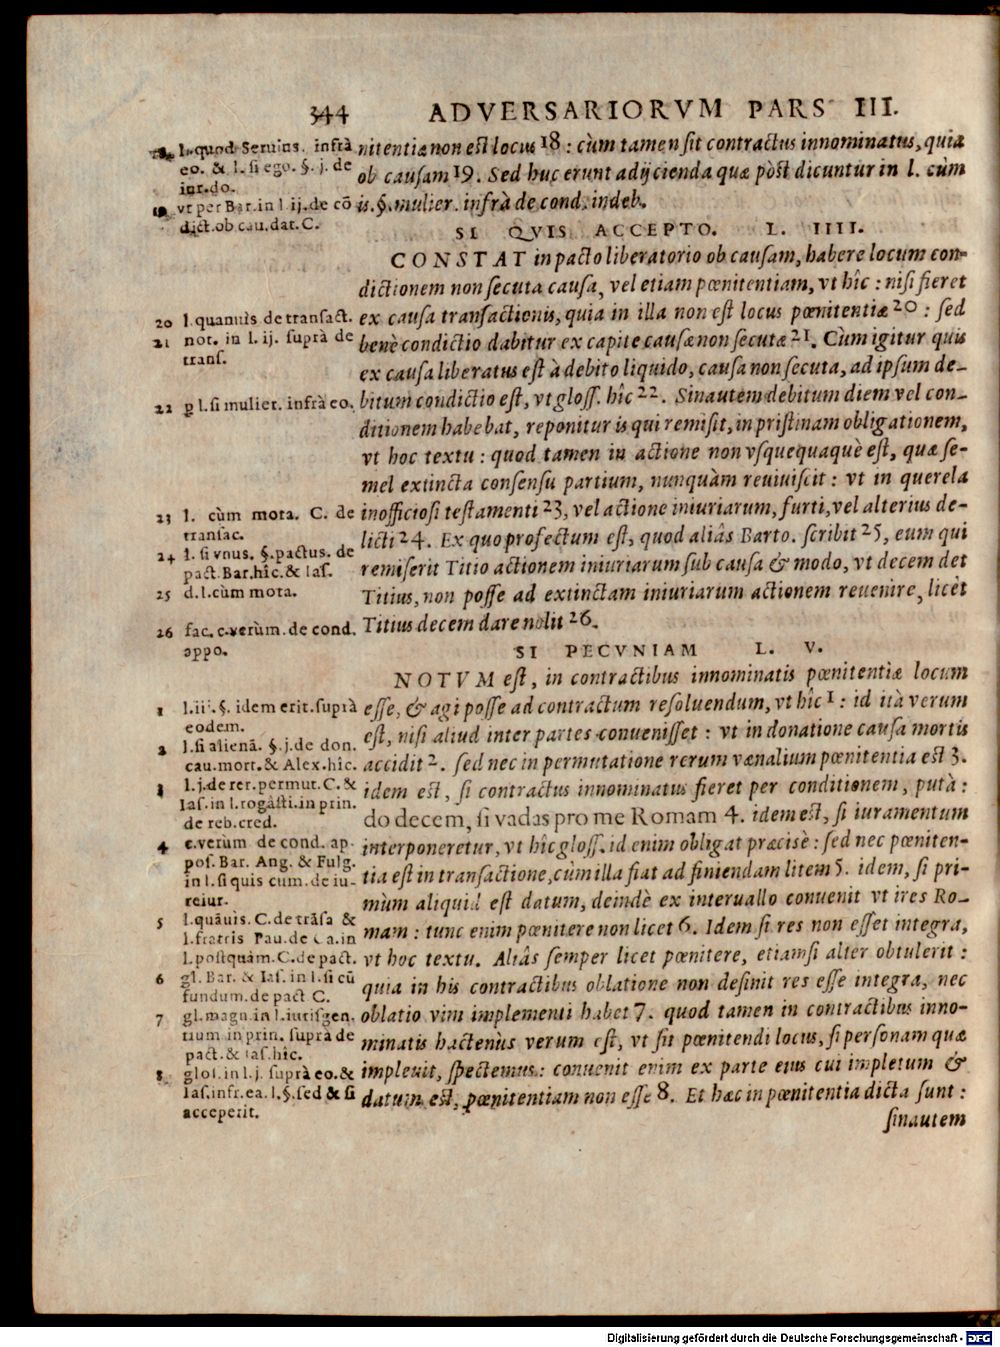 344 ADVERSARIORVM PARS III.
18 l. quod Seruius. infrà
eo. & l. si ego. §. j. de
iur. do.
19 vt per Bar. in l. ij. de cõ
dict. ob cau. dat. C.
nitentiæ non est locus 18 : cùm tamen sit contractus innominatus, quia
ob causam 19. Sed huc erunt adijcienda quæ pòst dicuntur in l. cùm
is. §. mulier. infrà de cond. indeb.
SI QVIS ACCEPTO. L. IIII.
CONSTAT in pacto liberatorio ob causam, habere locum con-
dictionem non secuta causa, vel etiam pœnitentiam, vt hîc : nisi fieret
ex causa transactionis, quia in illa non est locus pœnitentiæ 20 : sed
benè condictio dabitur ex capite causæ non secutæ 21. Cùm igitur quis
ex causa liberatus est à debito liquido, causa non secuta, ad ipsum de-
bitum condictio est, vt gloss. hîc 22. Sin autem debitum diem vel con-
ditionem habebat, reponitur is qui remisit, in pristinam obligationem,
vt hoc textu : quod tamen in actione non vsquequaquè est, quæ se-
mel extincta consensu partium, nunquàm reuiuiscit : vt in querela
inofficiosi testamenti 23, vel actione iniuriarum, furti, vel alterius de-
licti 24. Ex quo profectum est, quod aliâs Barto. scribit 25, eum qui
remiserit Titio actionem iniuriarum sub causa & modo, vt decem det
Titius, non posse ad extinctam iniuriarum actionem reuenire, licèt
Titius decem dare nolit 26.
20 l. quanuis de transact.
21 not. in l. ij. suprà de
trans.
22 p l. si mulier. infrà eo.
23 l. cùm mota. C. de
transac.
24 l. si vnus. §. pactus. de
pact. Bar. hîc. & Ias.
25 d. l. cùm mota.
26 fac. c. verùm. de cond.
appo.
SI PECVNIAM L. V.
NOTVM est, in contractibus innominatis pœnitentiæ locum
esse, & agi posse ad contractum resoluendum, vt hîc 1 : id ità verum
est, nisi aliud inter partes conuenisset : vt in donatione causa mortis
accidit 2. sed nec in permutatione rerum vænalium pœnitentia est 3.
idem est, si contractus innominatus fieret per conditionem, putà :
do decem, si vadas pro me Romam 4. idem est, si iuramentum
interponeretur, vt hîc gloss. id enim obligat præcisè : sed nec pœniten-
tia est in transactione, cùm illa fiat ad finiendam litem 5. idem, si pri-
mùm aliquid est datum, deindè ex interuallo conuenit vt ires Ro-
mam : tunc enim pœnitere non licet 6. Idem si res non esset integra,
vt hoc textu. Aliâs semper licet pœnitere, etiamsi alter obtulerit :
quia in his contractibus oblatione non desinit res esse integra, nec
oblatio vim implementi habet 7. quod tamen in contractibus inno-
minatis hactenùs verum est, vt sit pœnitendi locus, si personam quæ
impleuit, spectemus : conuenit enim ex parte eius cui impletum &
datum est, pœnitentiam non esse 8. Et hæc in pœnitentia dicta sunt :
sinautem
1 l. ii. §. idem erit. suprà
eodem.
2 l. si alienã. §. j. de don.
cau. mort. & Alex. hîc.
3 l. j. de rer. permut. C. &
Ias. in l. rogasti. in prin.
de reb. cred.
4 c. verùm de cond. ap-
pos. Bar. Ang. & Fulg.
in l. si quis cum. de iu-
reiur.
5 l. quãuis. C. de trãsa &
l. fratris Pau. de Ca. in
l. postquàm. C. de pact.
6 gl. Bar. & Ias. in l. si cũ
fundum. de pact C.
7 gl. magn. in l. iurisgen.
tium. in prin. suprà de
pact. & Ias. hîc.
8 glos. in l. j. suprà eo. &
Ias. infr. ea. l. §. sed & si
acceperit.
Digitalisierung gefördert durch die Deutsche Forschungsgemeinschaft - DFG